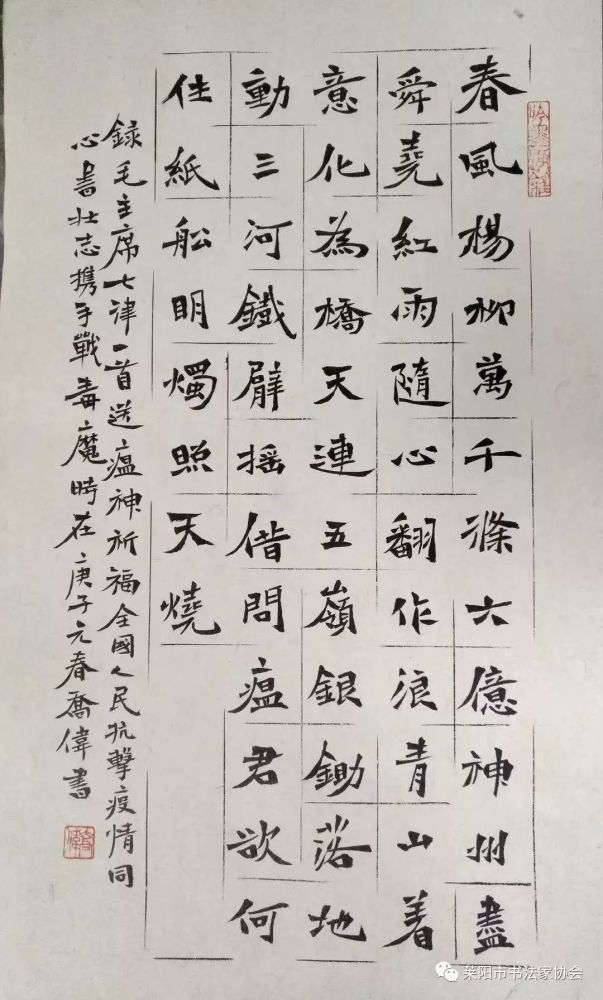 春風楊柳萬千條六億神州盡
舜堯紅雨隨心翻作浪青山着
意化為橋天連五嶺銀鋤落地
動三河鐵臂摇借問瘟君欲何
往紙舩明燭照天燒
錄毛主席七律一首送瘟神祈福全國人民抗擊疫情同
心書壯志携手戰毒魔時在庚子元春喬偉書
莱阳市书法家协会